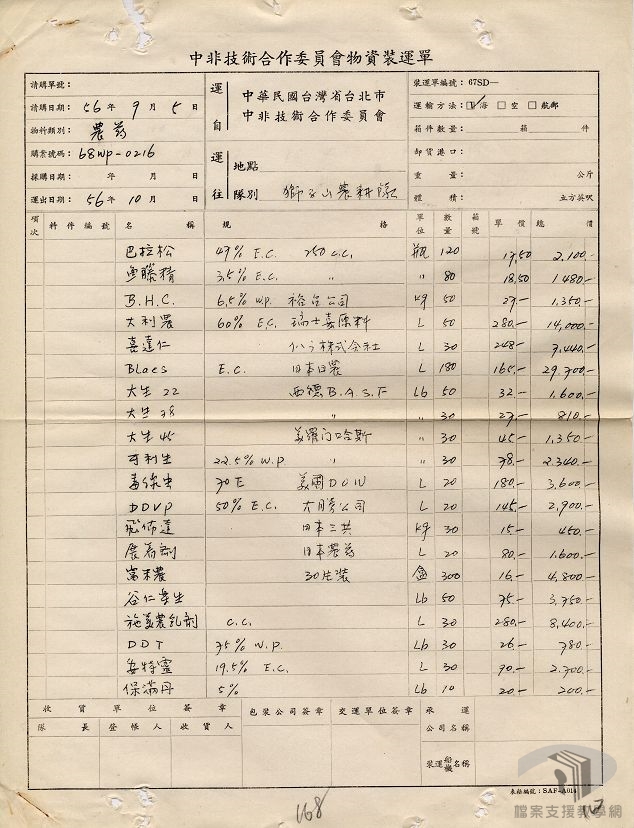 中非技術合作委員會物資裝運單
請購單號:
請購日期: 56年 9月 5日
物料類別: 農葯
購案號碼: 68WP-0216
採購日期: 年 月 日
運出日期: 56年 10月 日
運自
中華民國台灣省台北市
中非技術合作委員會
運往
地點
隊別 獅子山農耕隊
裝運單編號: 67SD—
運輸方法: 海 空 航郵
箱件數量: 箱 件
卸貨港口:
重量: 公斤
體積: 立方英呎
項次 料件編號 名稱 規格 單位 數量 箱號 單價 總價
巴拉松 49% E.C. 250 c.c. 瓶 120 17.50 2,100.-
魚藤精 3.5% E.C. " " 80 18.50 1480.-
B.H.C. 6.5% W.P. 裕台公司 kg 50 27.- 1,350.-
大利農 60% E.C. 瑞士嘉原料 L 50 280.- 14,000.-
喜達仁 株式会社 L 30 248.- 7,440.-
Blaes E.C. 日本日農 L 180 165.- 29,700.-
大生 22 西德B.A.S.F Lb 50 32.- 1,600.-
大生 78 " " 30 27.- 810.-
大生 45 美羅門哈斯 " 30 45.- 1,350.-
可利生 22.5% W.P. " " 30 78.- 2,340.-
毒線虫 70 E 美國DOW L 20 180.- 3,600.-
DDVP 50% E.C. 大勝公司 L 20 145.- 2,900.-
飛佈達 日本三共 kg 30 15.- 450.-
展着劑 日本農葯 L 20 80.- 1,600.-
富米農 30片裝 盒 300 16.- 4,800.-
谷仁生 Lb 50 75.- 3,750.-
施美農乳劑 C.C. L 30 280.- 8,400.-
DDT 75% W.P. Lb 30 26.- 780.-
安特靈 19.5% E.C. L 30 90.- 2,700.-
保滿丹 5% Lb 10 20.- 200.-
收貨單位簽章
隊長 登帳人 收貨人
包裝公司簽章
交運單位簽章
承運公司名稱
裝運船機名稱
表格編號: SAF-A014
168
檔案支援教學網